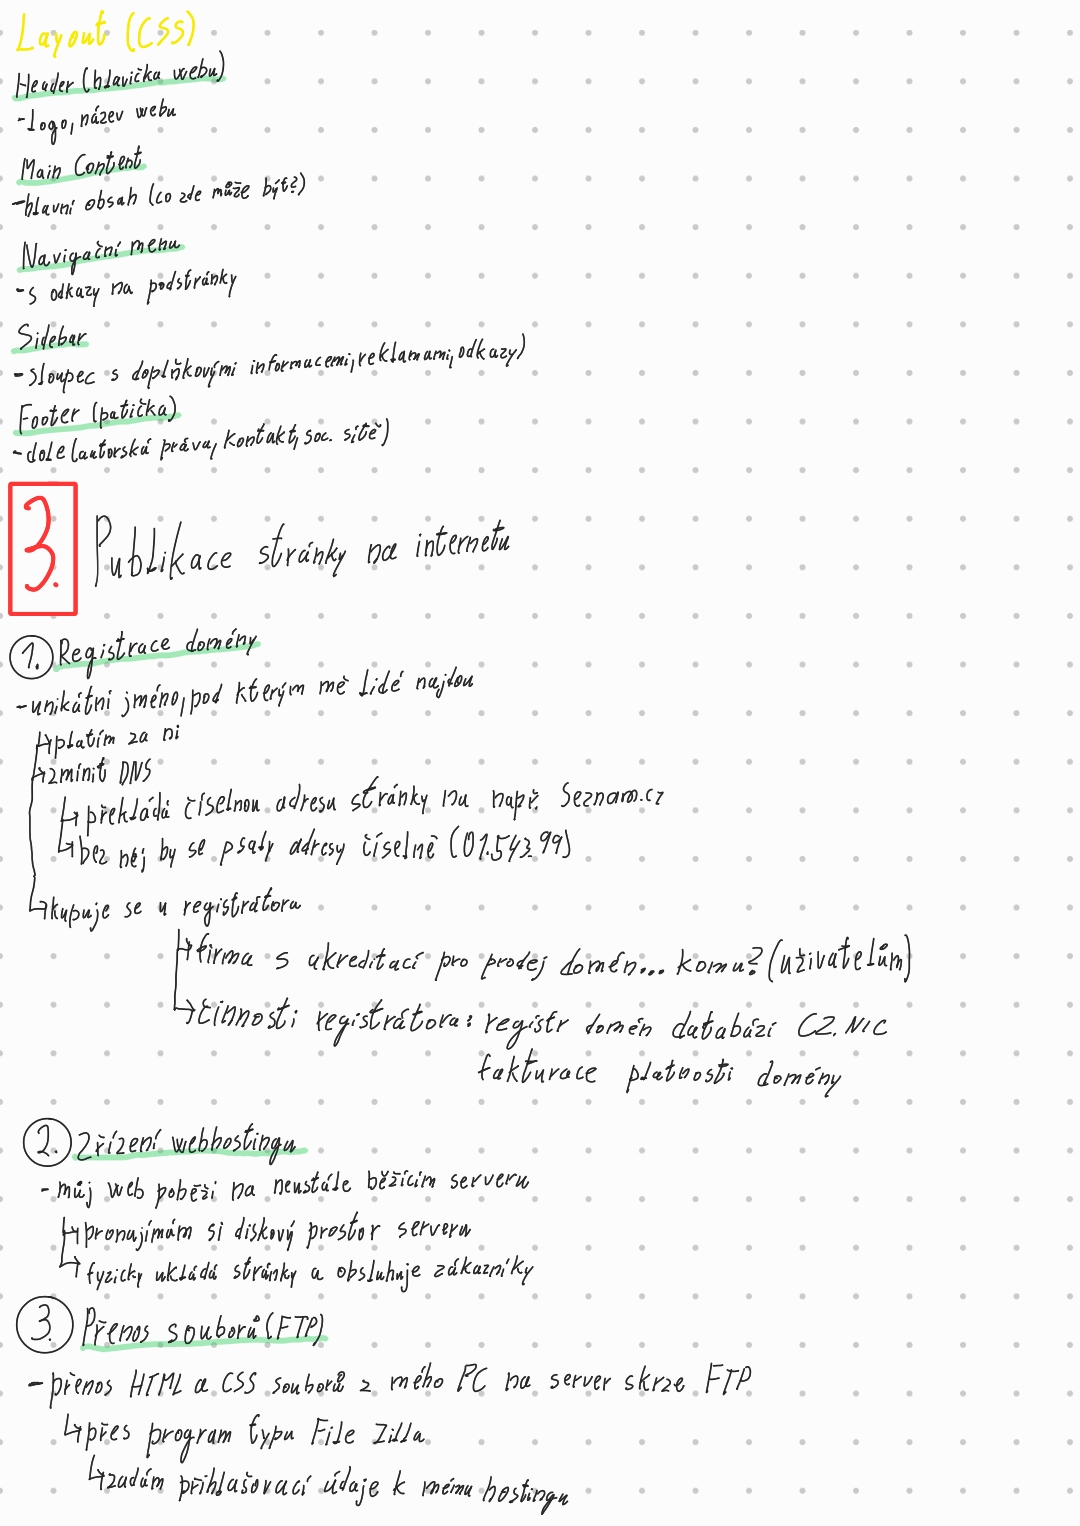 Layout (CSS)
Header (hlavička webu)
-logo, název webu
Main Content
-hlavní obsah (co zde může být?)
Navigační menu
-s odkazy na podstránky
Sidebar
-sloupec s doplňkovými informacemi, reklamami, odkazy)
Footer (patička)
-dole (autorská práva, kontakt, soc. sítě)
3. Publikace stránky na internetu
1. Registrace domény
-unikátní jméno, pod kterým mě lidé najdou
↳platím za ni
↳zmínit DNS
↳překládá číselnou adresu stránky na např. Seznam.cz
↳bez něj by se psaly adresy číselně (01.543.99)
↳kupuje se u registrátora
↳firma s akreditací pro prodej domén... komu? (uživatelům)
↳činnosti registrátora: registr domén databází CZ.NIC
fakturace platnosti domény
2. Zřízení webhostingu
-můj web poběží na neustále běžícím serveru
↳pronajímám si diskový prostor serveru
↳fyzicky ukládá stránky a obsluhuje zákazníky
3. Přenos souborů (FTP)
-přenos HTML a CSS souborů z mého PC na server skrze FTP
↳přes program typu File Zilla
↳zadám přihlašovací údaje k mému hostingu